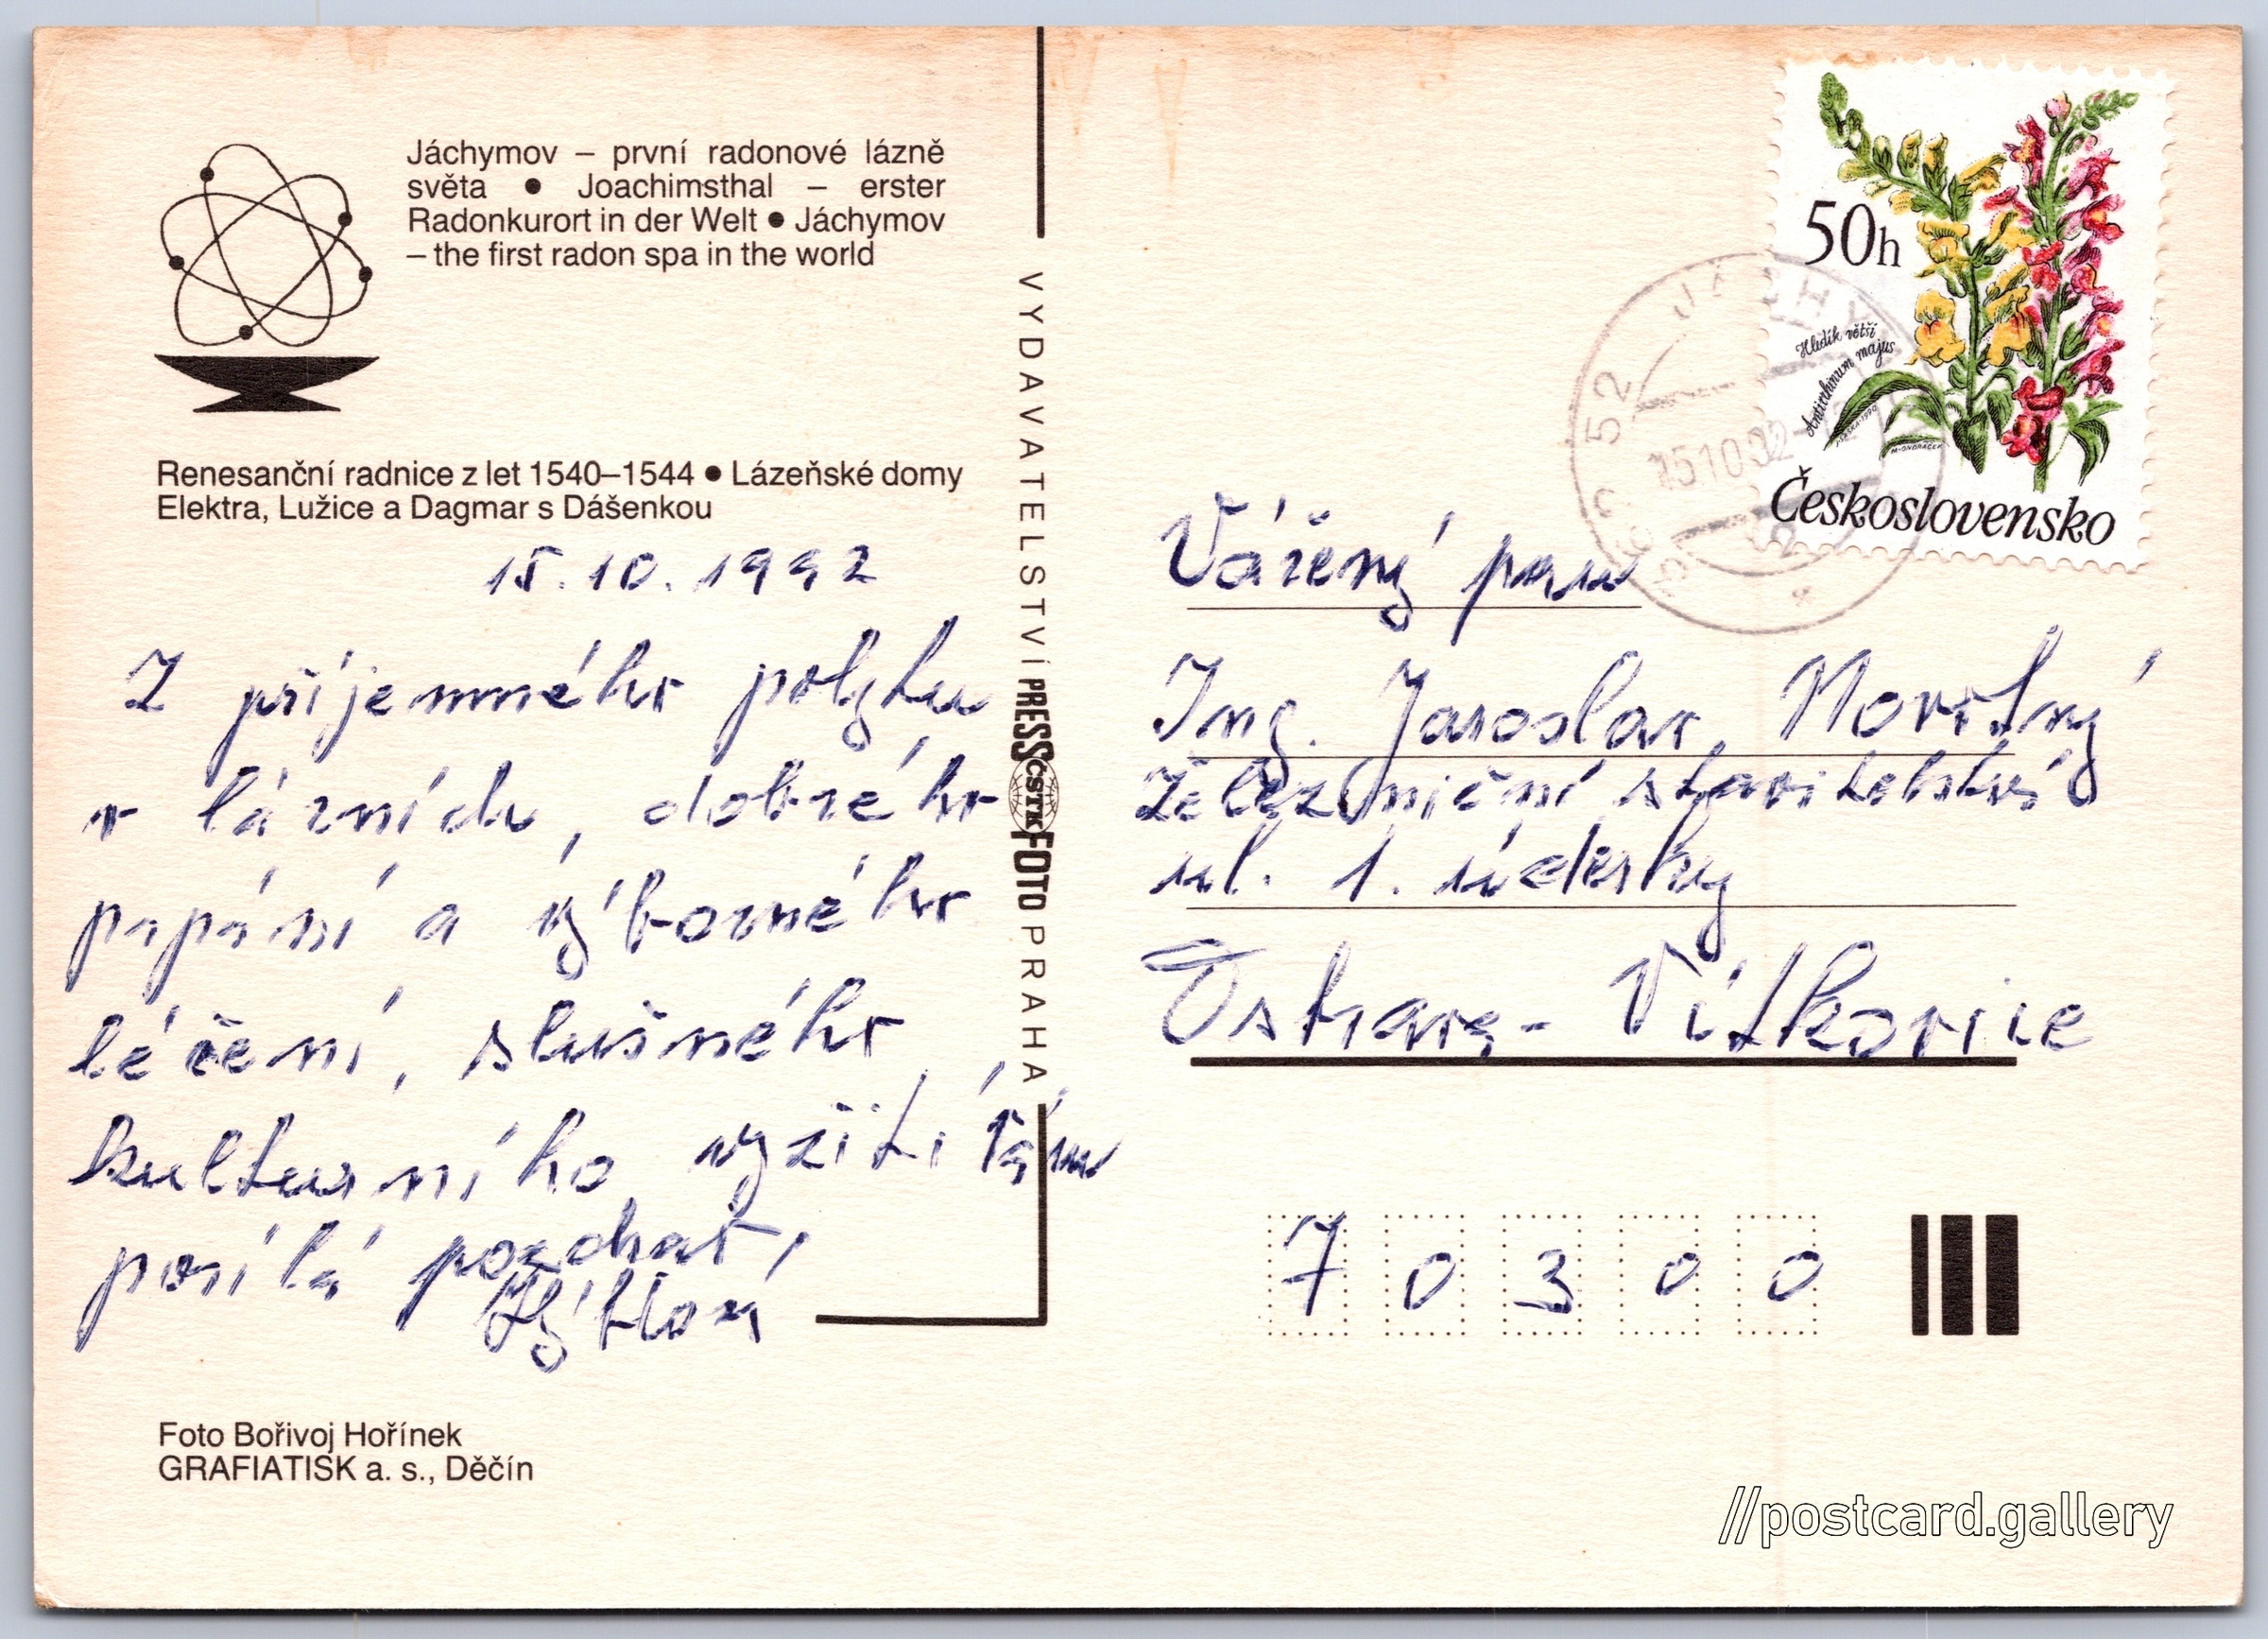 Jáchymov – první radonové lázně
světa ● Joachimsthal – erster
Radonkurort in der Welt ● Jáchymov
– the first radon spa in the world
Renesanční radnice z let 1540–1544 ● Lázeňské domy
Elektra, Lužice a Dagmar s Dášenkou
15.10.1992
Z příjemného pobytu
v lázních, dobrého
papání a výborného
léčení, slušného
kulturního vyžití Vám
posílá pozdrav,
Foto Bořivoj Hořínek
GRAFIATISK a. s., Děčín
VYDAVATELSTVÍ PRESSFOTO PRAHA
ČSTK
50h
Hledík větší
Antirrhinum majus
Československo
15.10.92
Vážený pan
Ing. Jaroslav Novotný
Železniční stavitelství
ul. 1. úderky
Ostrava - Vítkovice
70300
//postcard.gallery